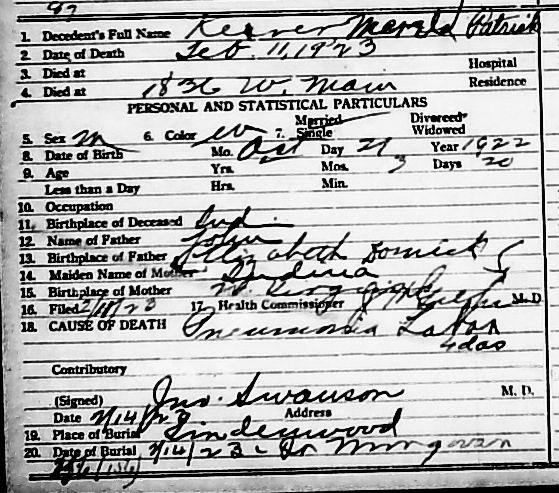 97
1. Decedent's Full Name Keever Merele Patrick
2. Date of Death Feb. 11, 1923 Hospital
3. Died at Residence
4. Died at 1836 W. Main
PERSONAL AND STATISTICAL PARTICULARS
5. Sex M 6. Color W 7. Married Single Divorced Widowed
8. Date of Birth Mo. Oct Day 21 Year 1922
9. Age Yrs. Mos. 3 Days 20
Less than a Day Hrs. Min.
10. Occupation
11. Birthplace of Deceased Ind.
12. Name of Father John
13. Birthplace of Father Elizabeth
14. Maiden Name of Mother Indiana
15. Birthplace of Mother W. Virginia
16. Filed 23 17. Health Commissioner M. D.
18. CAUSE OF DEATH Pneumonia Lobar
4 das
Contributory
(Signed) Jno. Swanson M. D.
Date 2/14/23 Address
19. Place of Burial Lindenwood
20. Date of Burial 2/14/23